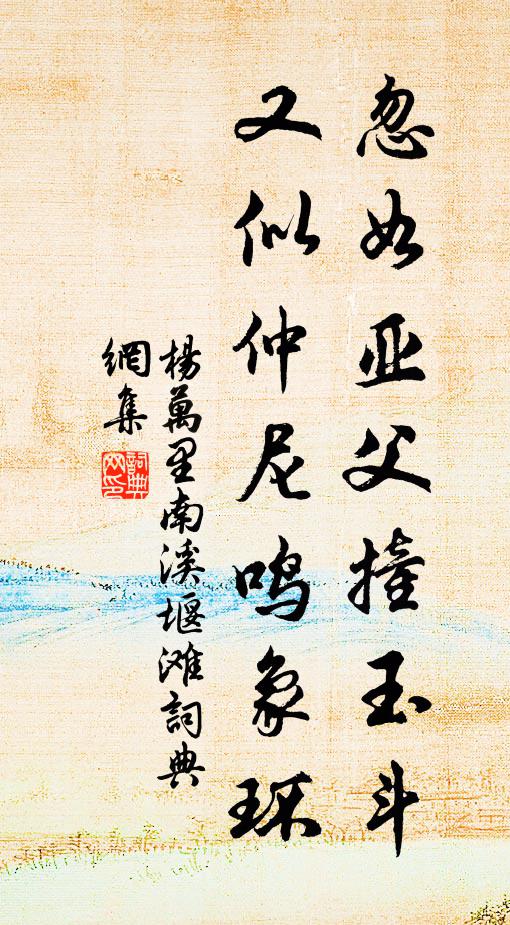 忽如亚父撞玉斗
又似仲尼鸣象环
杨萬里南溪堰滩詞典
網集
詞典
网印